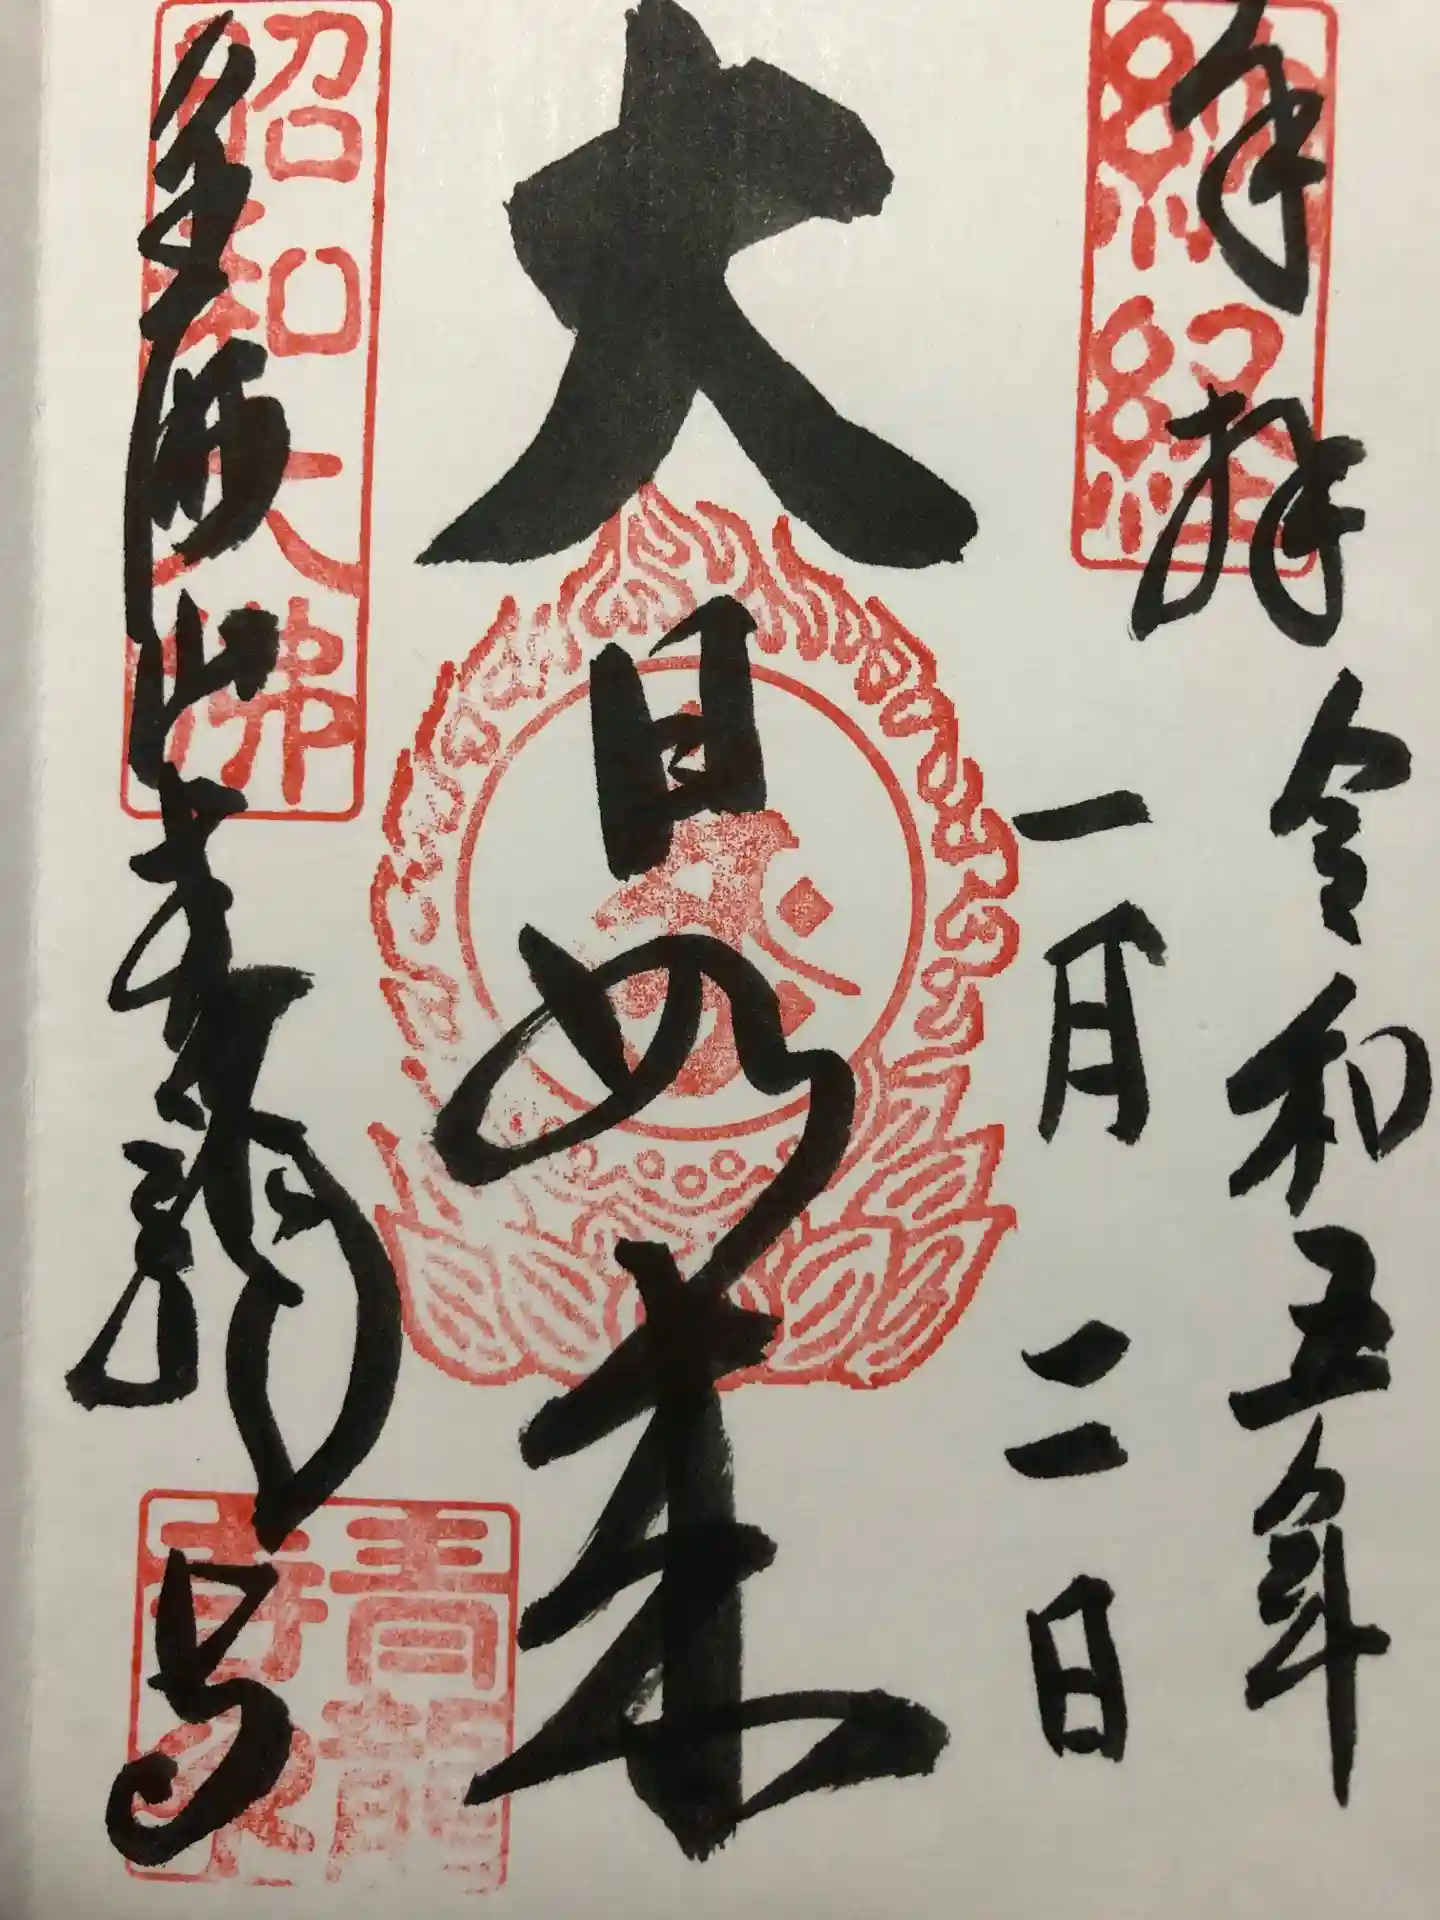 奉拝
令和五年
一月二日
納経
大日如来
昭和大佛
全海山青龍寺
青龍寺印